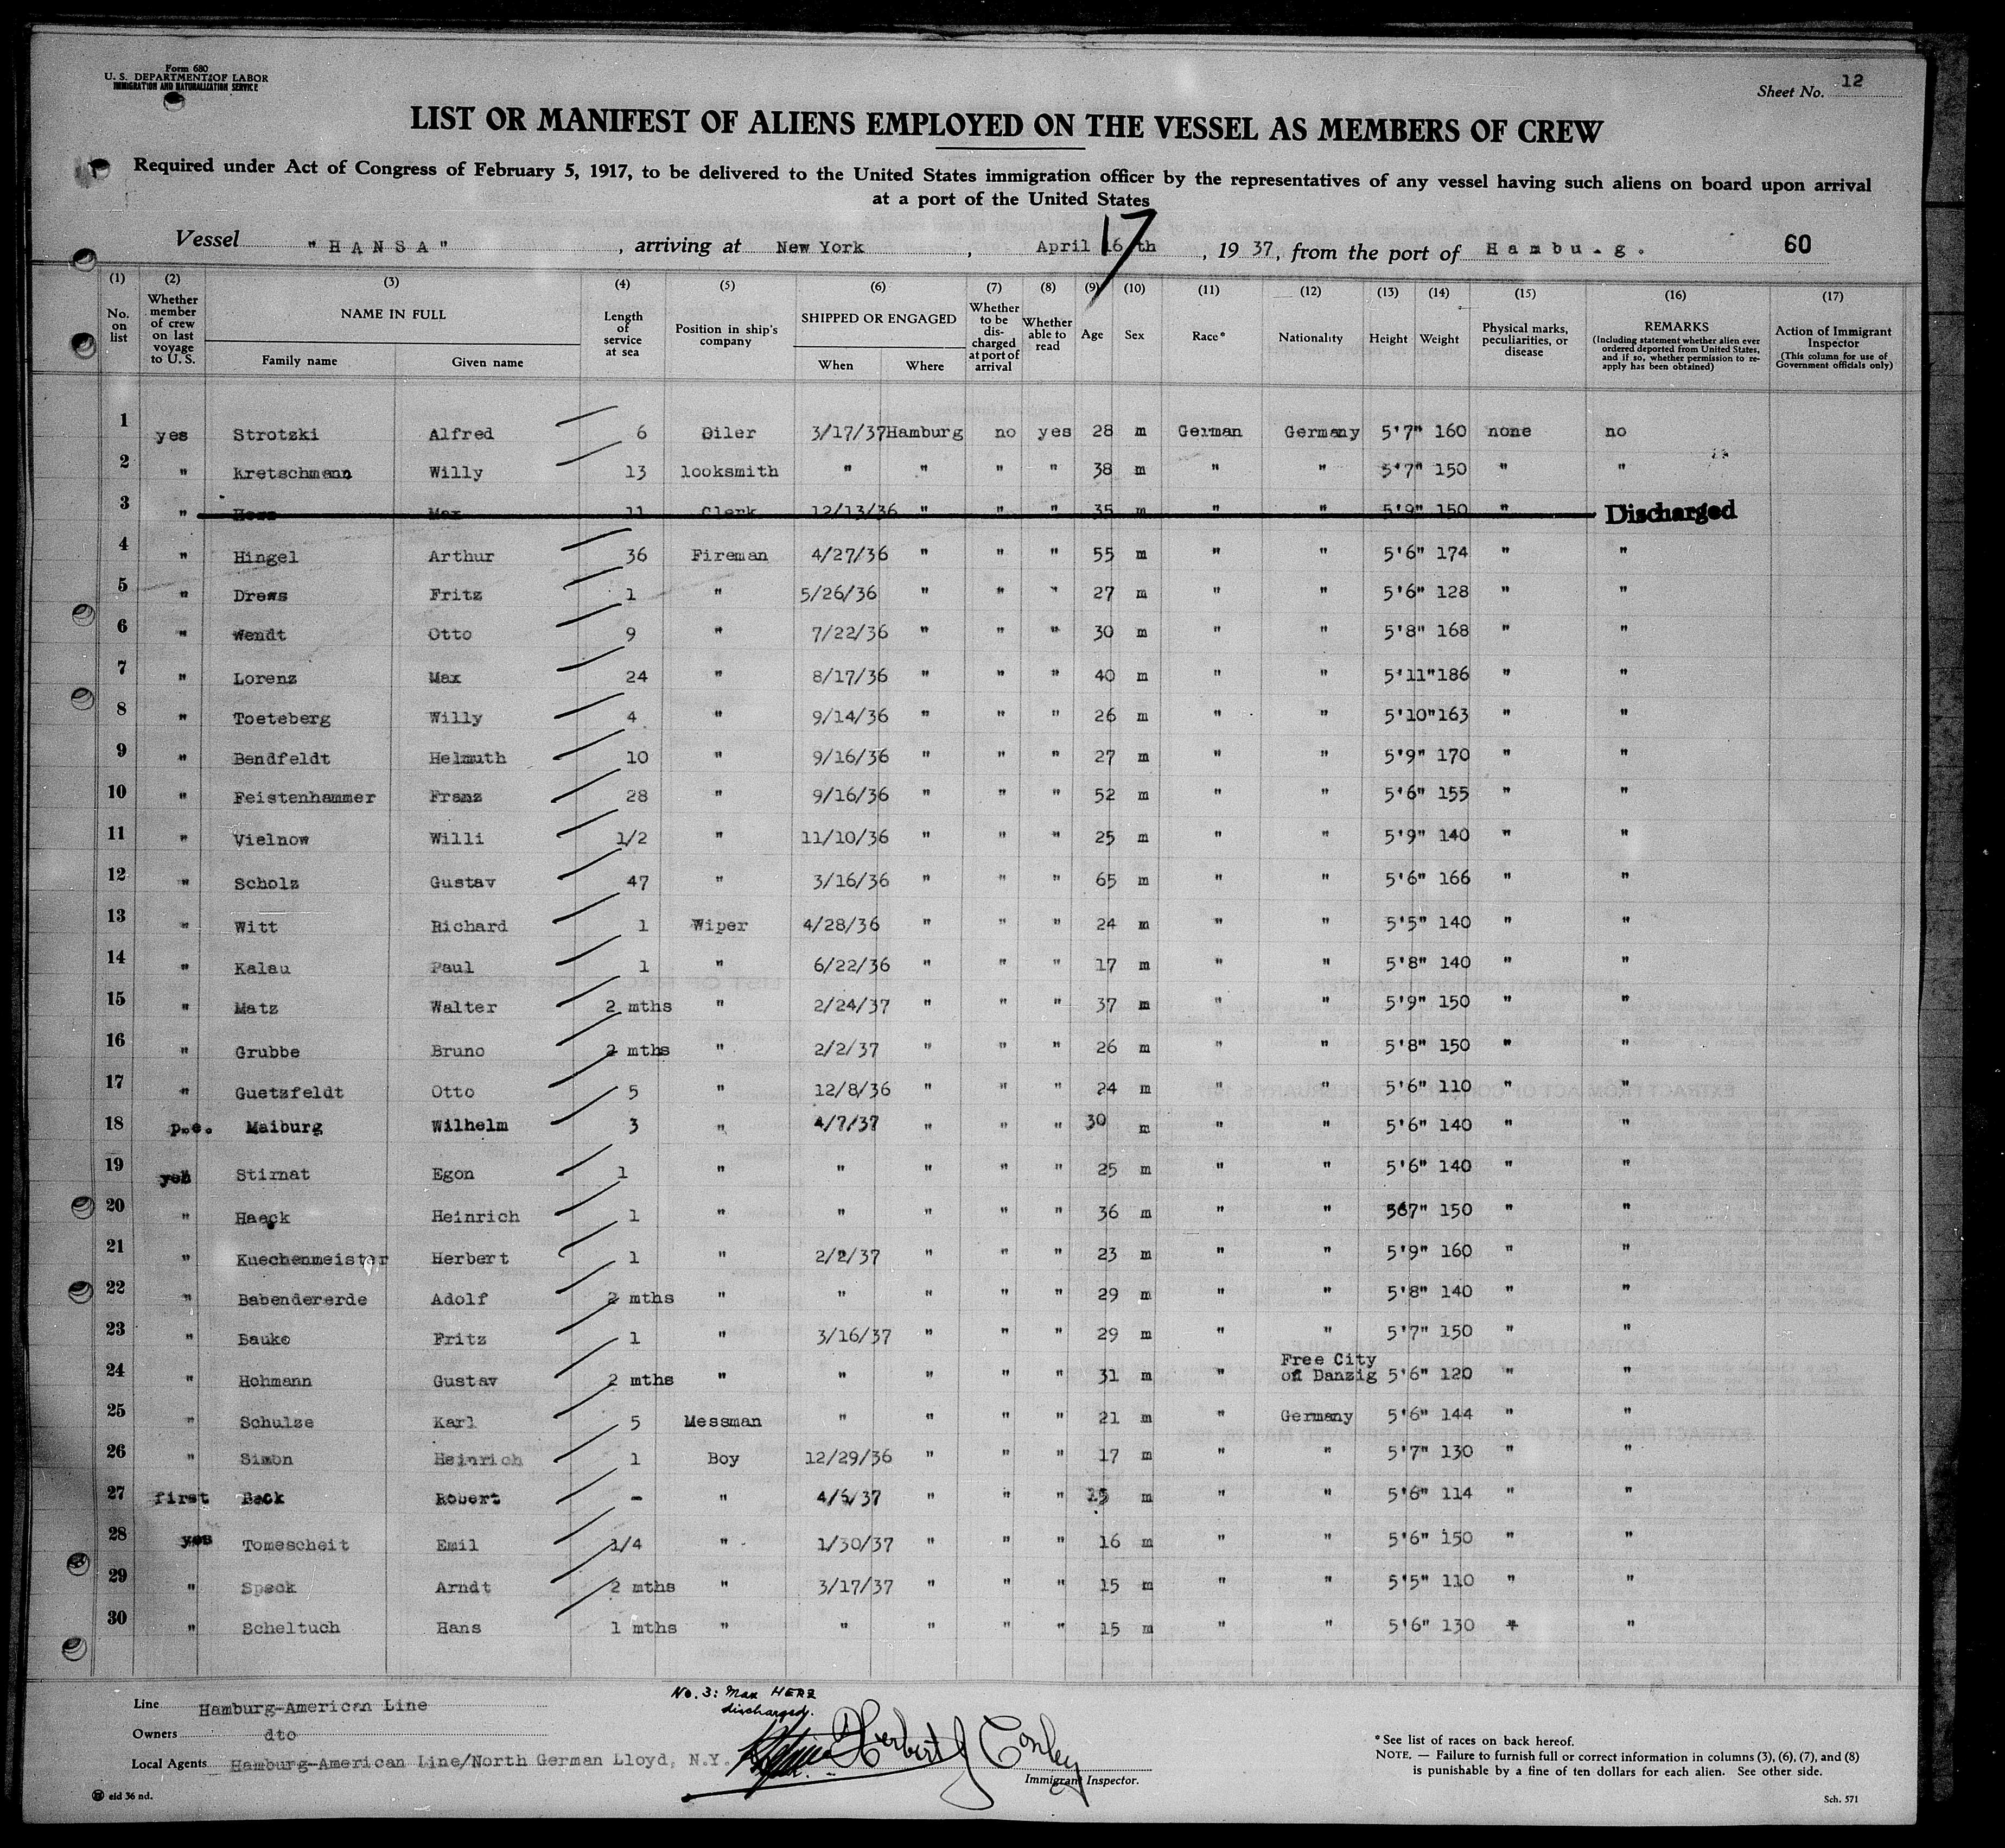 Form 680
U. S. DEPARTMENT OF LABOR
IMMIGRATION AND NATURALIZATION SERVICE
Sheet No. 12
LIST OR MANIFEST OF ALIENS EMPLOYED ON THE VESSEL AS MEMBERS OF CREW
Required under Act of Congress of February 5, 1917, to be delivered to the United States immigration officer by the representatives of any vessel having such aliens on board upon arrival
at a port of the United States
17
Vessel "HANSA", arriving at New York, April 16th, 1937, from the port of Hambu.g. 60
(1) No. on list (2) Whether member of crew on last voyage to U. S. (3) NAME IN FULL Family name Given name (4) Length of service at sea (5) Position in ship's company (6) SHIPPED OR ENGAGED When Where (7) Whether to be discharged at port of arrival (8) Whether able to read (9) Age (10) Sex (11) Race* (12) Nationality (13) Height (14) Weight (15) Physical marks, peculiarities, or disease (16) REMARKS (Including statement whether alien ever ordered deported from United States, and if so, whether permission to re-apply has been obtained) (17) Action of Immigrant Inspector (This column for use of Government officials only)
1 yes Strotzki Alfred 6 Oiler 3/17/37 Hamburg no yes 28 m German Germany 5'7" 160 none no
2 " Kretschmann Willy 13 looksmith " " " " 38 m " " 5'7" 150 " "
3 " Max 11 Clerk 12/13/36 " " " 35 m " " 5'9" 150 " Discharged
4 " Hingel Arthur 36 Fireman 4/27/36 " " " 55 m " " 5'6" 174 " "
5 " Drews Fritz 1 " 5/26/36 " " " 27 m " " 5'6" 128 " "
6 " Wendt Otto 9 " 7/22/36 " " " 30 m " " 5'8" 168 " "
7 " Lorenz Max 24 " 8/17/36 " " " 40 m " " 5'11" 186 " "
8 " Toeteberg Willy 4 " 9/14/36 " " " 26 m " " 5'10" 163 " "
9 " Bendfeldt Helmuth 10 " 9/16/36 " " " 27 m " " 5'9" 170 " "
10 " Feistenhammer Franz 28 " 9/16/36 " " " 52 m " " 5'6" 155 " "
11 " Vielnow Willi 1/2 " 11/10/36 " " " 25 m " " 5'9" 140 " "
12 " Scholz Gustav 47 " 3/16/36 " " " 65 m " " 5'6" 166 " "
13 " Witt Richard 1 Wiper 4/28/36 " " " 24 m " " 5'5" 140 " "
14 " Kalau Paul 1 " 6/22/36 " " " 17 m " " 5'8" 140 " "
15 " Matz Walter 2 mths " 2/24/37 " " " 37 m " " 5'9" 150 " "
16 " Grubbe Bruno 2 mths " 2/2/37 " " " 26 m " " 5'8" 150 " "
17 " Guetzfeldt Otto 5 " 12/8/36 " " " 24 m " " 5'6" 110 " "
18 p.e. Maiburg Wilhelm 3 " 4/7/37 " " " 30 m " " 5'6" 140 " "
19 yes Stirnat Egon 1 " " " " " 25 m " " 5'6" 140 " "
20 " Haeck Heinrich 1 " " " " " 36 m " " 5'7" 150 " "
21 " Kuechenmeister Herbert 1 " 2/2/37 " " " 23 m " " 5'9" 160 " "
22 " Babendererde Adolf 2 mths " " " " " 29 m " " 5'8" 140 " "
23 " Bauko Fritz 1 " 3/16/37 " " " 29 m " " 5'7" 150 " "
24 " Hohmann Gustav 2 mths " " " " " 31 m " Free City of Danzig 5'6" 120 " "
25 " Schulze Karl 5 Messman " " " " 21 m " Germany 5'6" 144 " "
26 " Simon Heinrich 1 Boy 12/29/36 " " " 17 m " " 5'7" 130 " "
27 first Back Robert - " 4/6/37 " " " m " " 5'6" 114 " "
28 yes Tomescheit Emil 1/4 " 1/30/37 " " " 16 m " " 5'6" 150 " "
29 " Speck Arndt 2 mths " 3/17/37 " " " 15 m " " 5'5" 110 " "
30 " Scheltuch Hans 1 mths " " " " " 15 m " " 5'6" 130 " "
Line Hamburg-American Line
Owners dto
Local Agents Hamburg-American Line/North German Lloyd, N.Y.
No. 3: Max HERZ
discharged.
Herbert J Conley
Immigrant Inspector.
*See list of races on back hereof.
NOTE. — Failure to furnish full or correct information in columns (3), (6), (7), and (8)
is punishable by a fine of ten dollars for each alien. See other side.
eid 36 nd.
Sch. 571